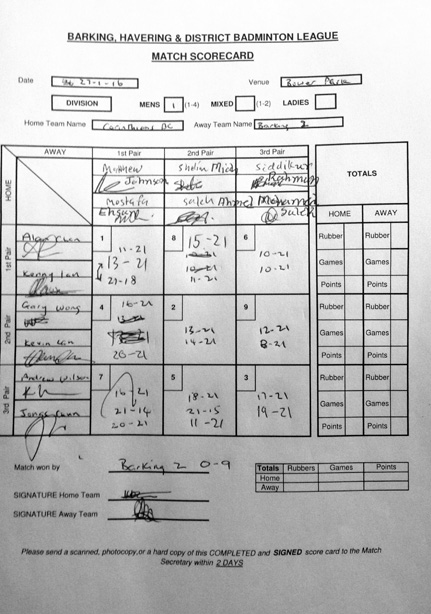 BARKING, HAVERING & DISTRICT BADMINTON LEAGUE
MATCH SCORECARD
Date 27-1-16 Venue Bower Park
DIVISION MENS 1 (1-4) MIXED (1-2) LADIES
Home Team Name Corinthians BC Away Team Name Barking 2
AWAY 1st Pair 2nd Pair 3rd Pair
HOME
Matthew Johnson
Siddikur Rahman
Mostafa
Saleh Ahmed
Mohammed Saleh
TOTALS
HOME AWAY
1st Pair
Alan
Kenny Lan
1 11-21
13-21
21-18
8 15-21
11-21
6 10-21
10-21
Rubber Rubber
Games Games
Points Points
2nd Pair
Gary Wong
Kevin Lan
4 16-21
20-21
2 13-21
14-21
9 12-21
8-21
Rubber Rubber
Games Games
Points Points
3rd Pair
Andrew Wilson
7 16-21
21-14
20-21
5 18-21
21-15
11-21
3 17-21
19-21
Rubber Rubber
Games Games
Points Points
Match won by Barking 2 0-9
Totals Rubbers Games Points
Home
Away
SIGNATURE Home Team
SIGNATURE Away Team
Please send a scanned, photocopy,or a hard copy of this COMPLETED and SIGNED score card to the Match
Secretary within 2 DAYS